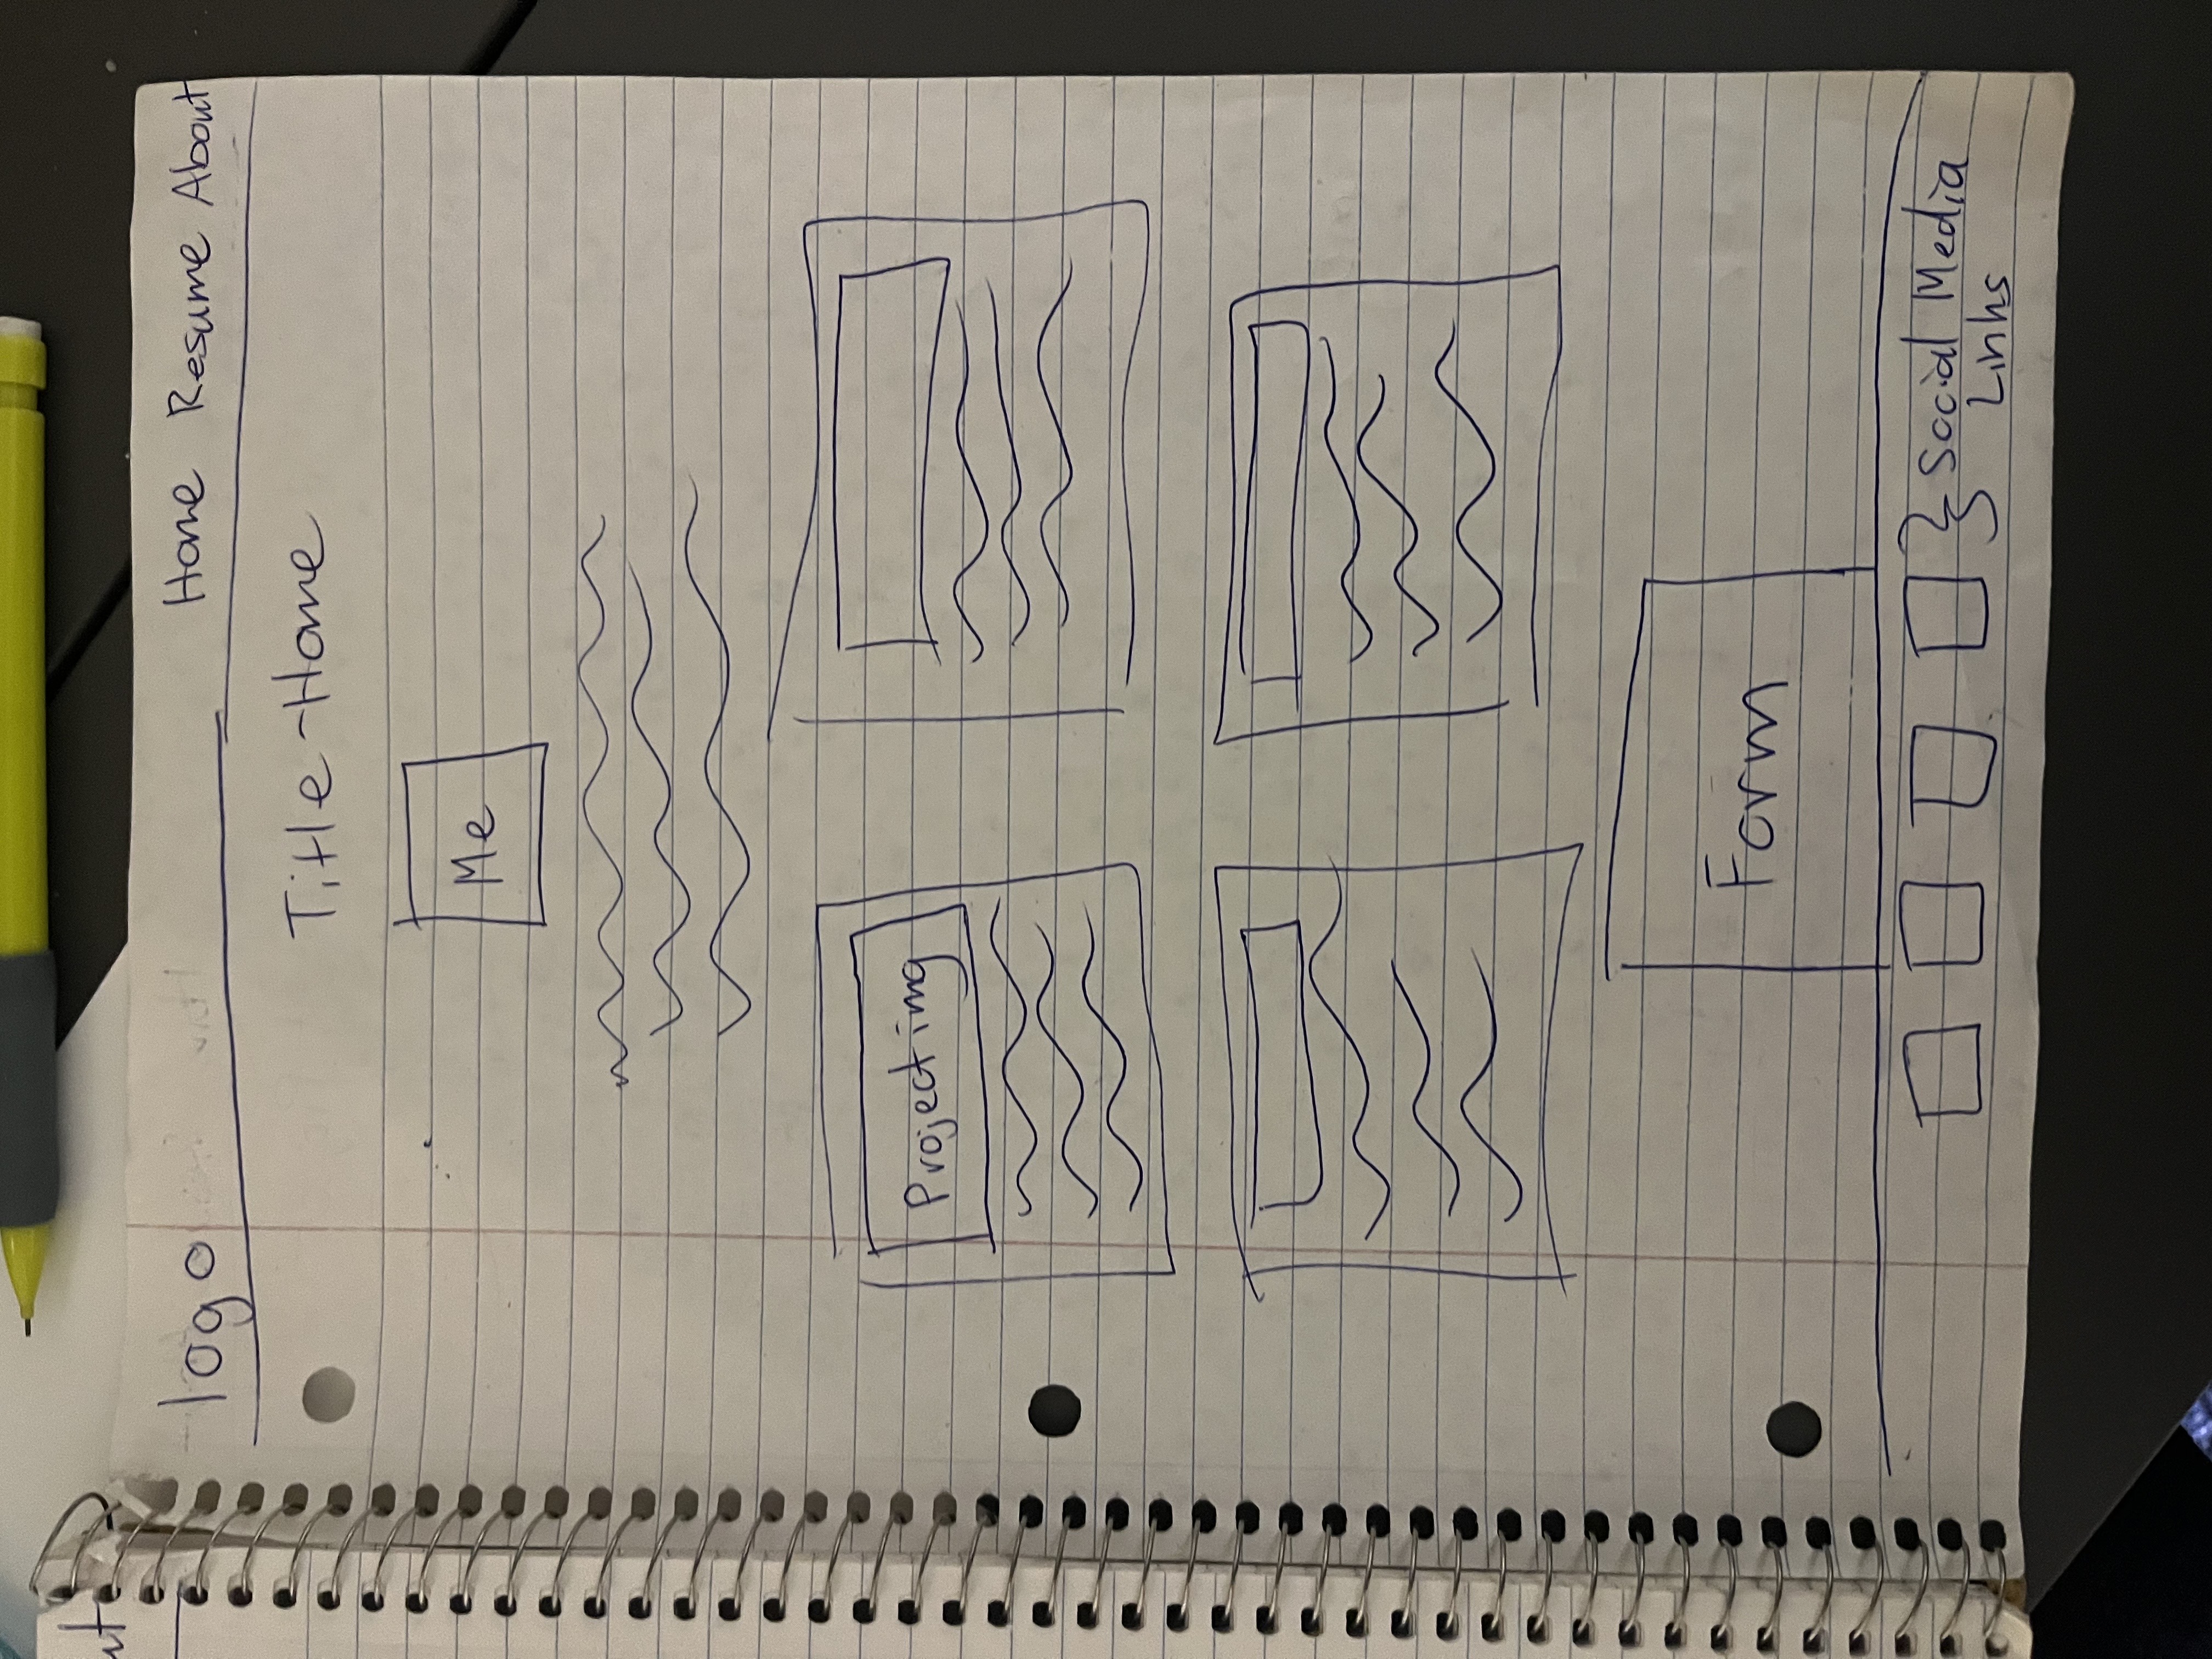 logo Home Resume About
Title-Home
Me
Project img
Form
Social Media
Links